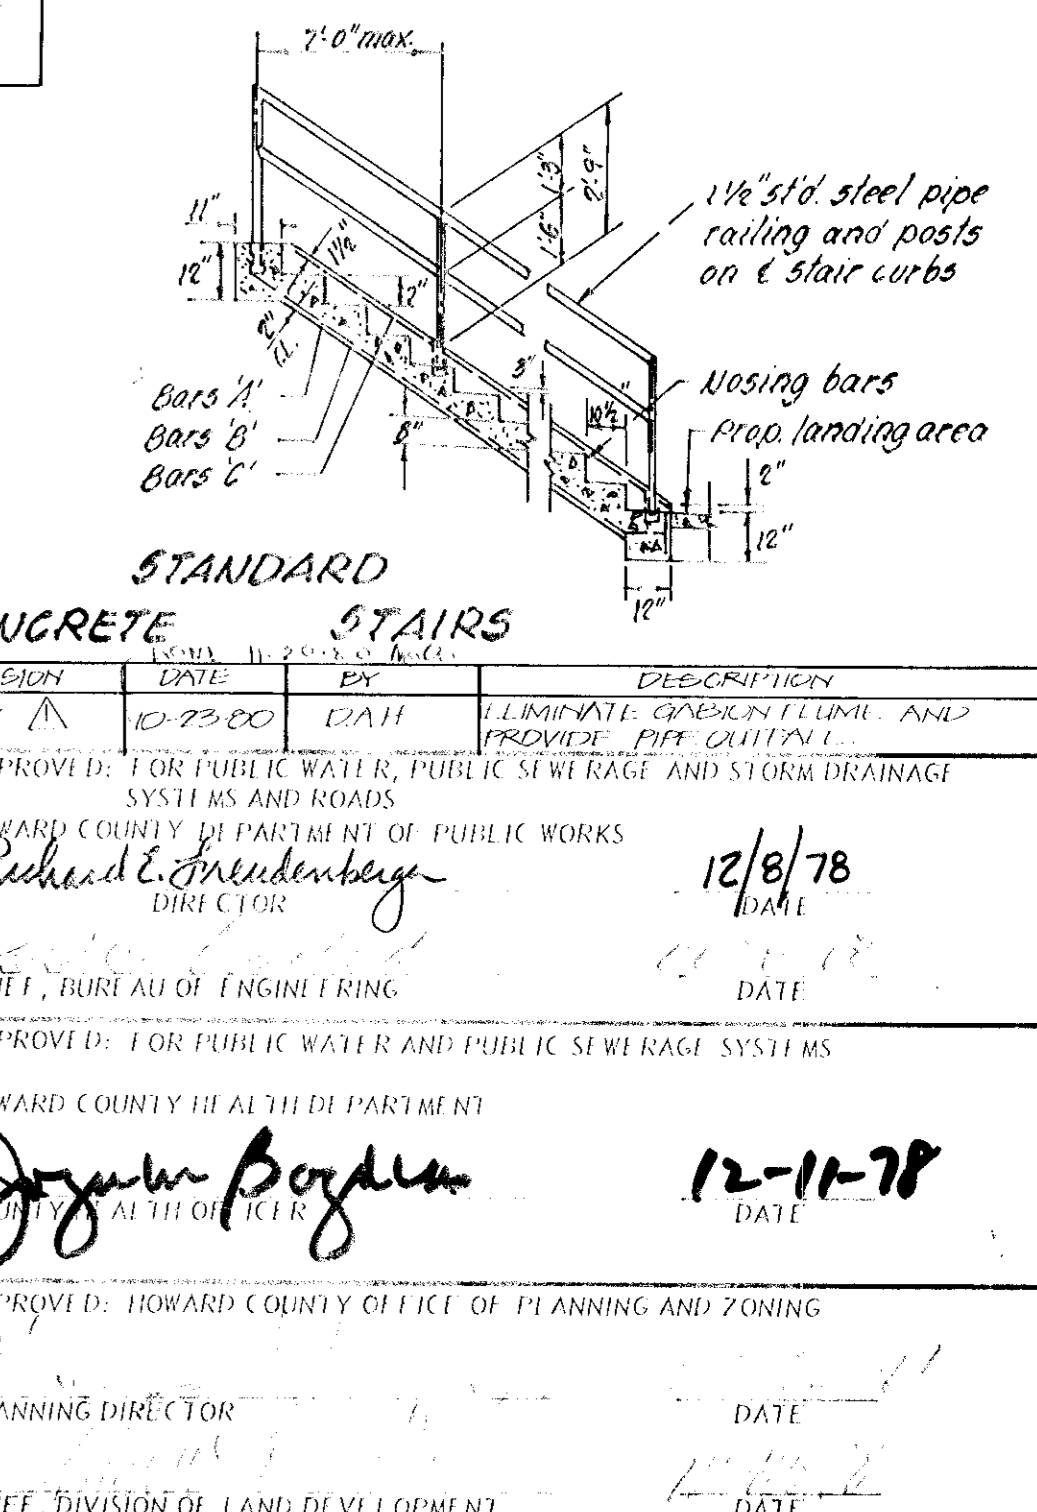 7'-0" max.
1'-3"
2'-9"
1'-6"
11"
12"
1 1/2"
2"
2"
CL.
1 1/2" st'd. steel pipe
railing and posts
on ℄ stair curbs
3"
Nosing bars
10 1/2"
Prop. landing area
Bars 'A'
Bars 'B'
Bars 'C'
8"
2"
12"
12"
STANDARD
NCRETE STAIRS
SION DATE BY DESCRIPTION
⚠ 10-23-80 DAH ELIMINATE GABION FLUME AND
PROVIDE PIPE OUTFALL.
PROVED: FOR PUBLIC WATER, PUBLIC SEWERAGE AND STORM DRAINAGE
SYSTEMS AND ROADS
WARD COUNTY DEPARTMENT OF PUBLIC WORKS
Richard E. Freudenberger 12/8/78
DIRECTOR DATE
IEF, BUREAU OF ENGINEERING DATE
PROVED: FOR PUBLIC WATER AND PUBLIC SEWERAGE SYSTEMS
WARD COUNTY HEALTH DEPARTMENT
12-11-78
UNTY HEALTH OFFICER DATE
PROVED: HOWARD COUNTY OFFICE OF PLANNING AND ZONING
ANNING DIRECTOR DATE
IEF, DIVISION OF LAND DEVELOPMENT DATE